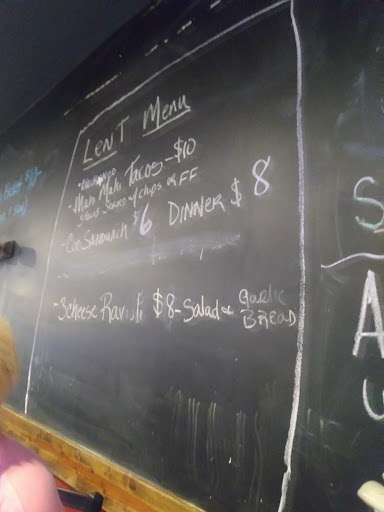 LENT Menu
- BLACKENED
Mahi Mahi Tacos - $10
w/ chips or FF
- Cod Sandwich $6 DINNER $8
- 3cheese Ravioli $8 - Salad & Garlic
BREAD
S
A
U